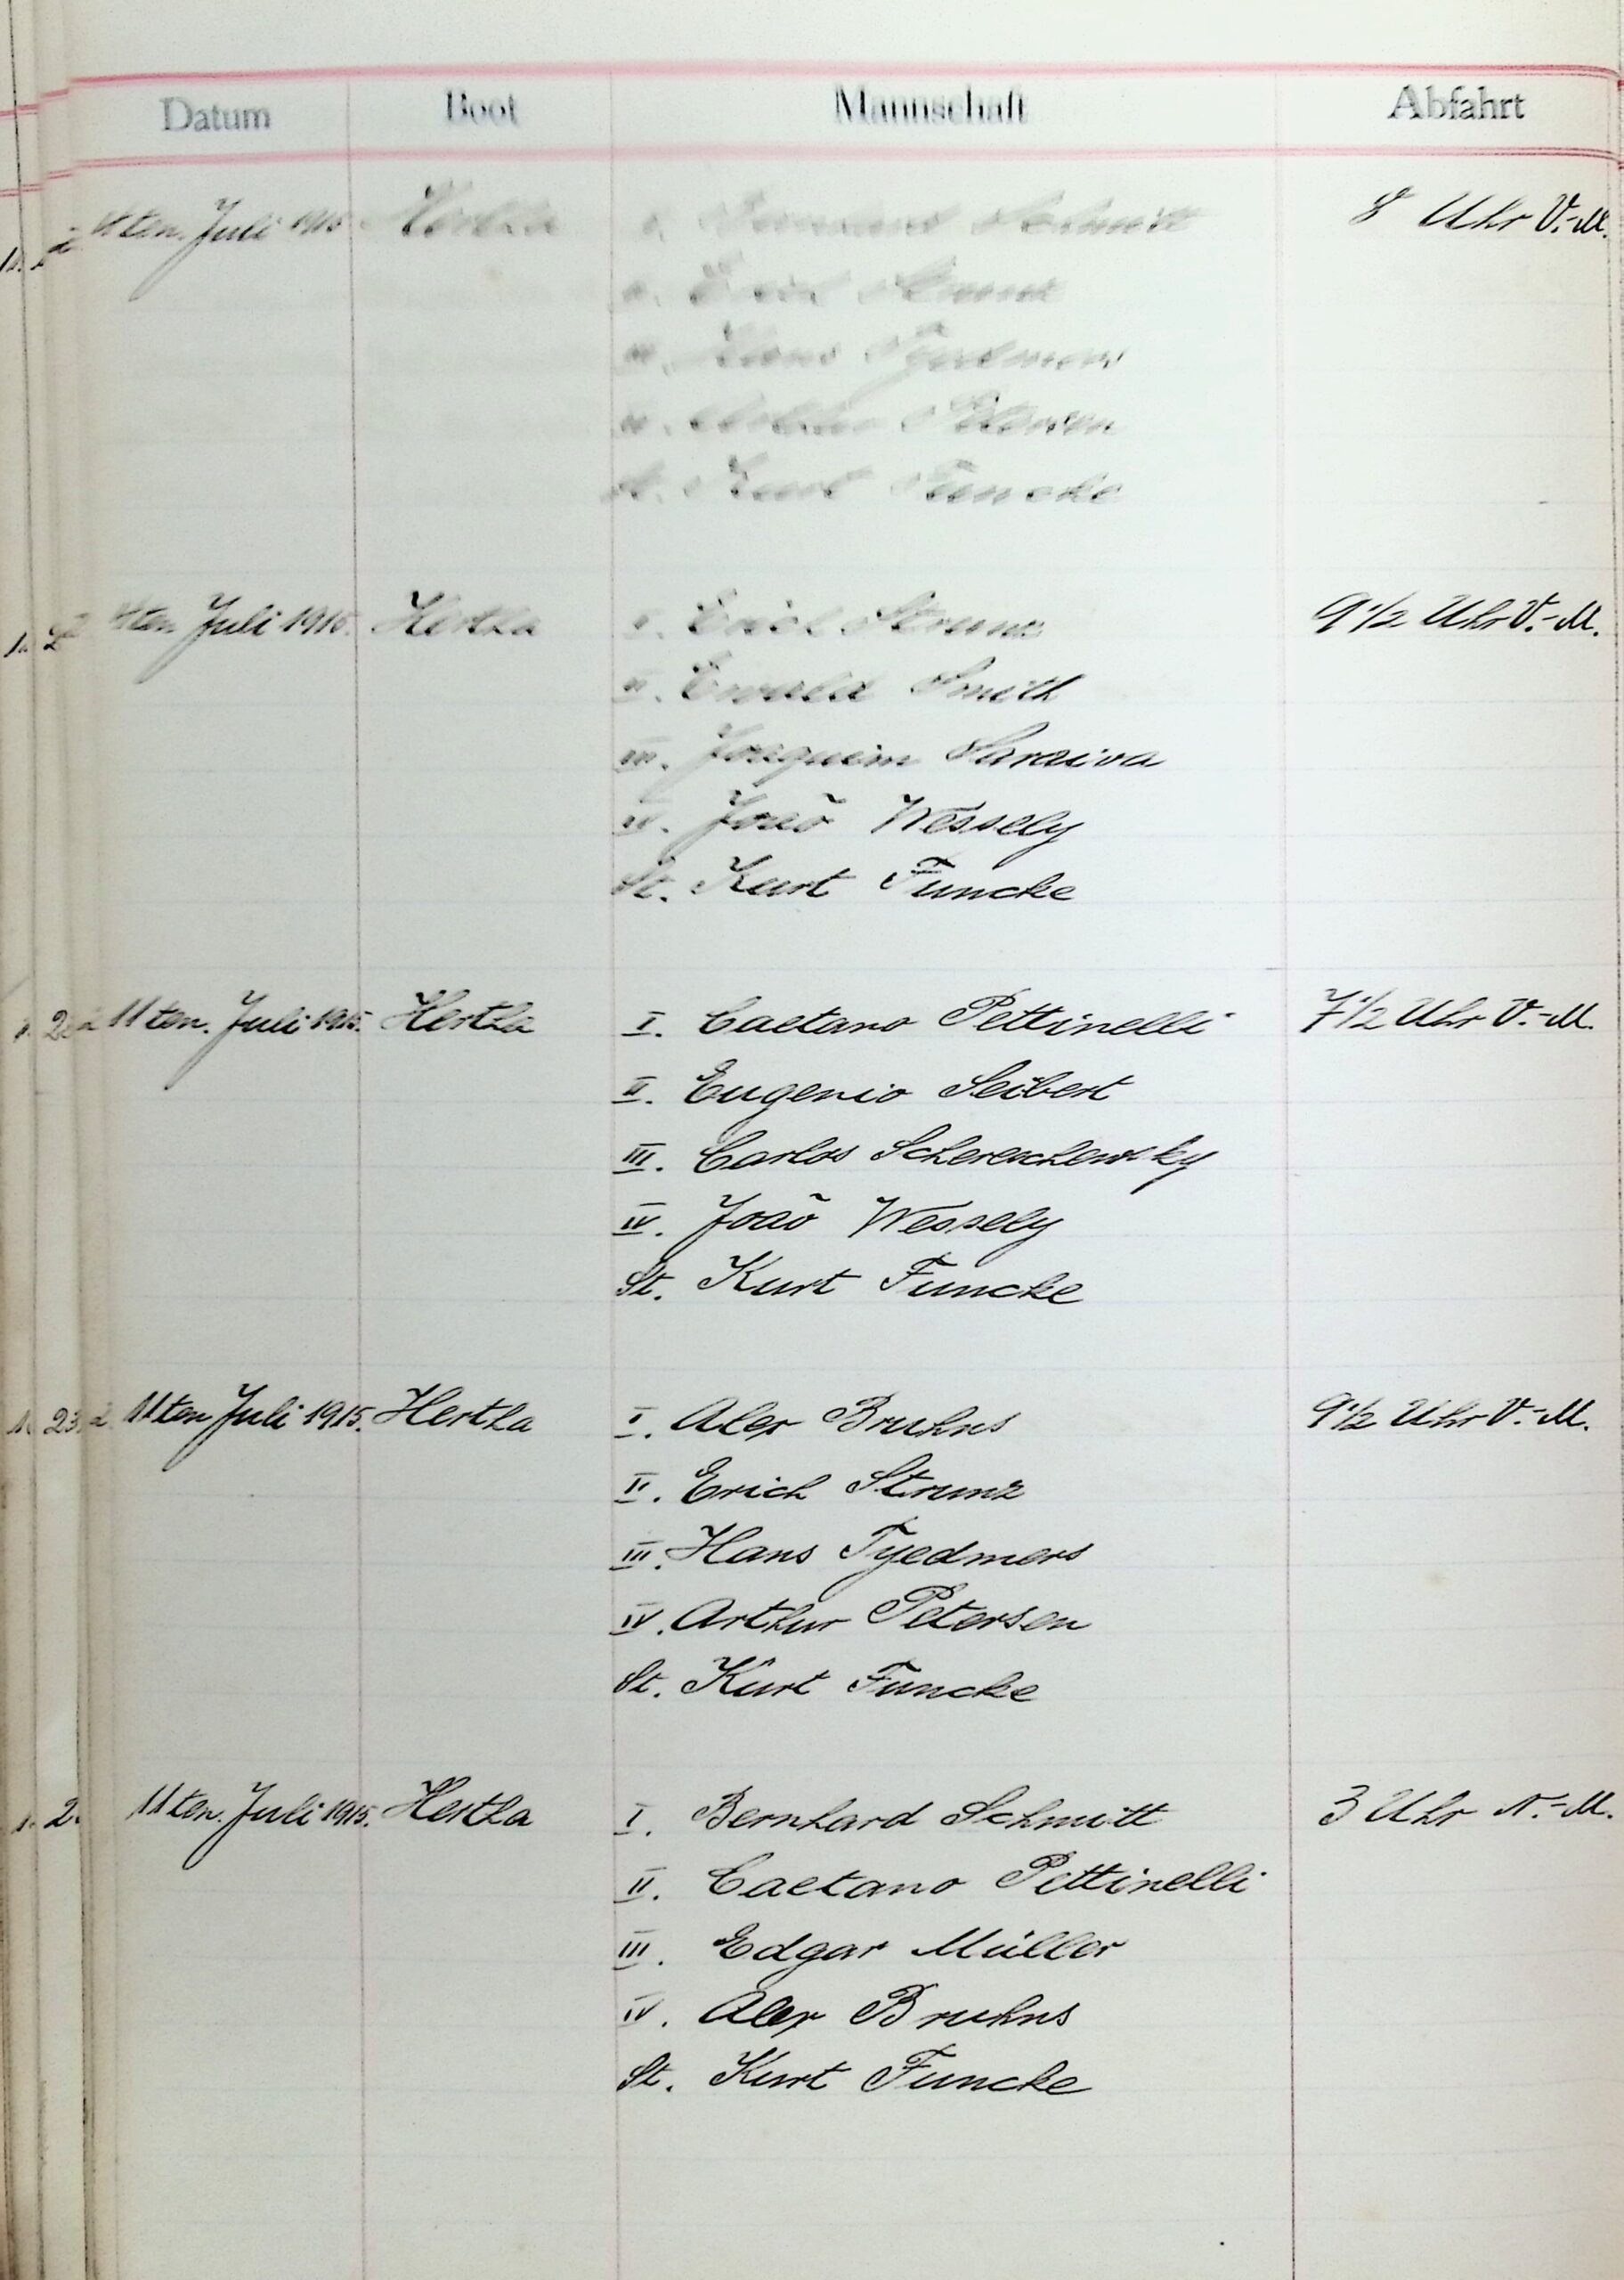 Datum Boot Mannschaft Abfahrt
4ten. Juli 1915 Hertha I. Schmitt 8 Uhr V.-M.
II. Erich Strunz
III. Hans Tyedmers
IV. Arthur Petersen
St. Kurt Funcke
4ten. Juli 1915. Hertha I. Erich Strunz 9 1/2 Uhr V.-M.
II. Ewald Smith
III. Joaquim Saraiva
IV. Joaõ Wessely
St. Kurt Funcke
11ten. Juli 1915. Hertha I. Caetano Pettinelli 7 1/2 Uhr V.-M.
II. Eugenio Seibert
III. Carlos Schereschewsky
IV. Joaõ Wessely
St. Kurt Funcke
11ten Juli 1915. Hertha I. Alex Bruhns 9 1/2 Uhr V.-M.
II. Erich Strunz
III. Hans Tyedmers
IV. Arthur Petersen
St. Kurt Funcke
11ten. Juli 1915. Hertha I. Bernhard Schmitt 3 Uhr N.-M.
II. Caetano Pettinelli
III. Edgar Müller
IV. Alex Bruhns
St. Kurt Funcke